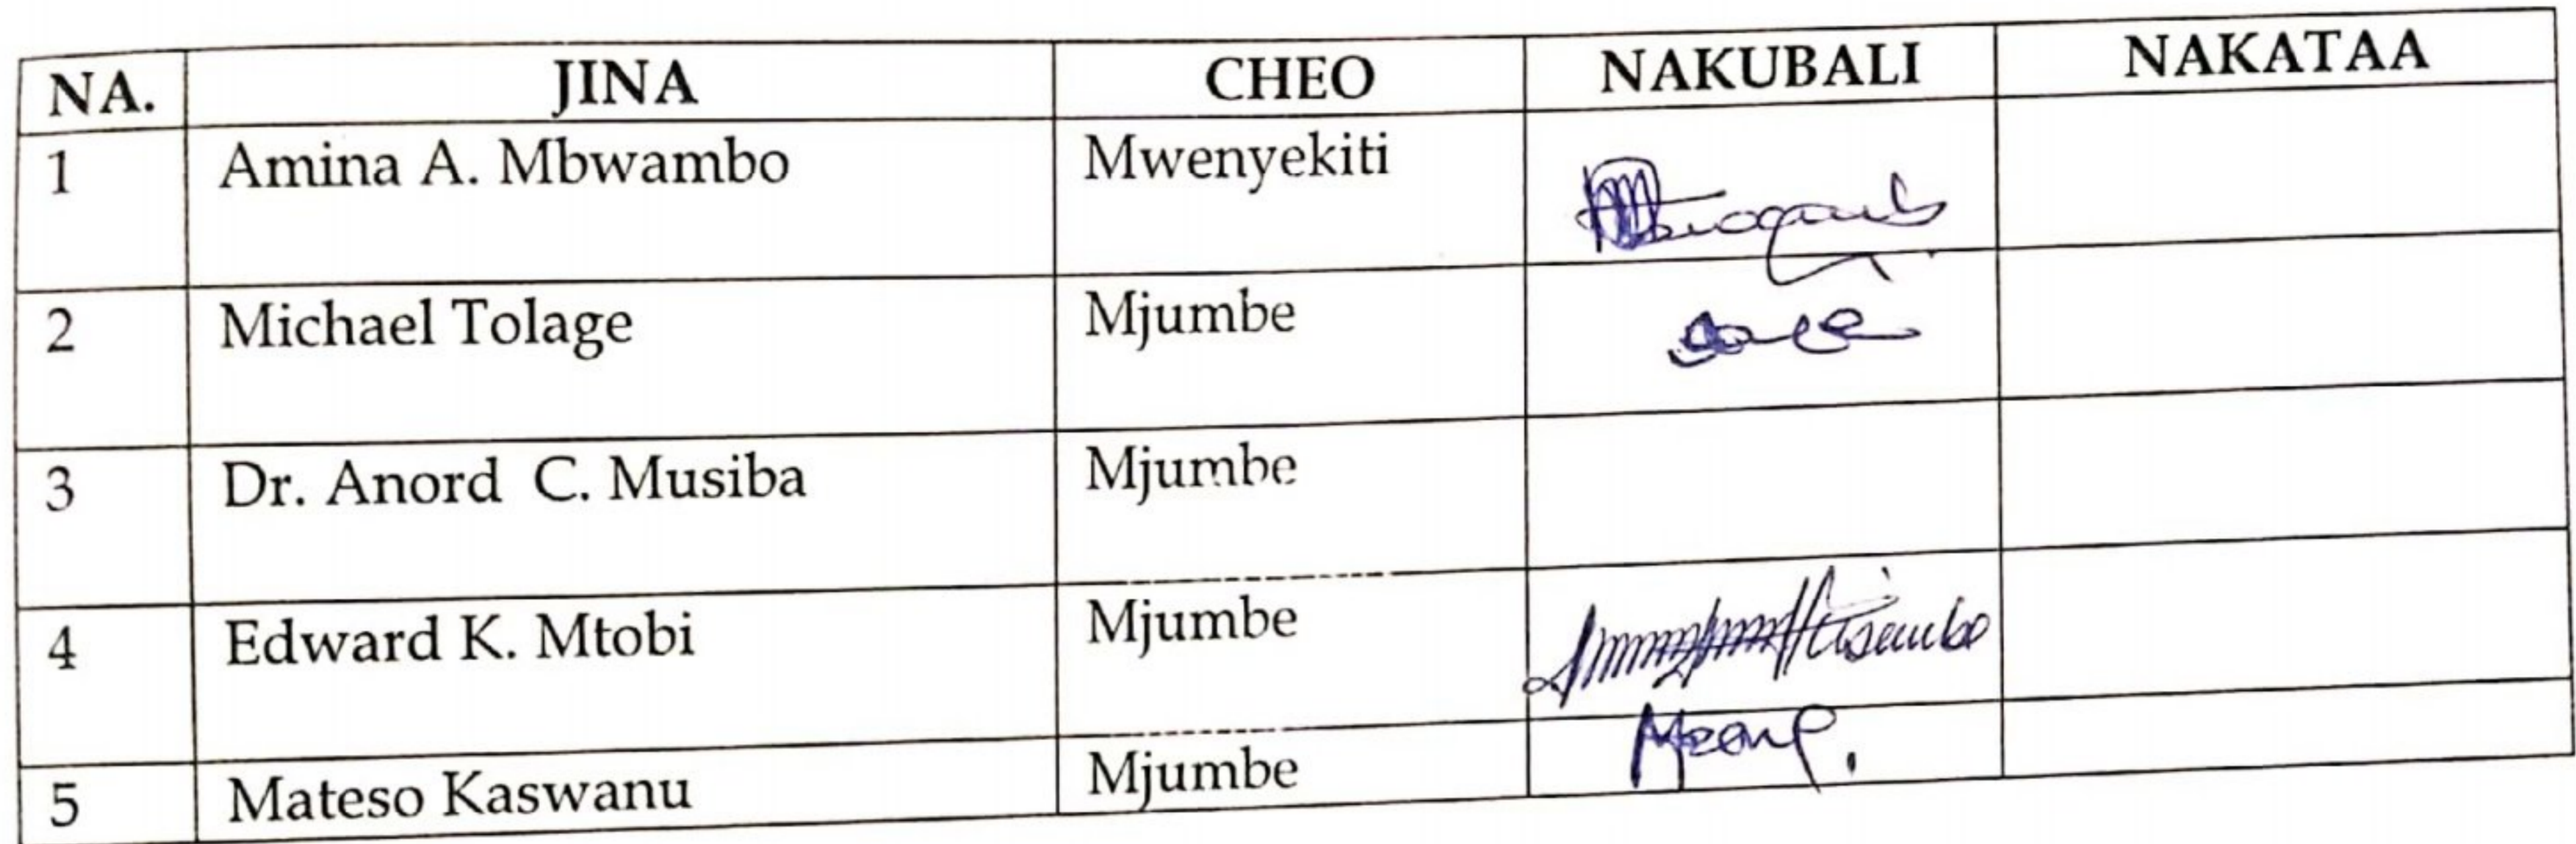 NA. JINA CHEO NAKUBALI NAKATAA
1 Amina A. Mbwambo Mwenyekiti
2 Michael Tolage Mjumbe
3 Dr. Anord C. Musiba Mjumbe
4 Edward K. Mtobi Mjumbe
5 Mateso Kaswanu Mjumbe